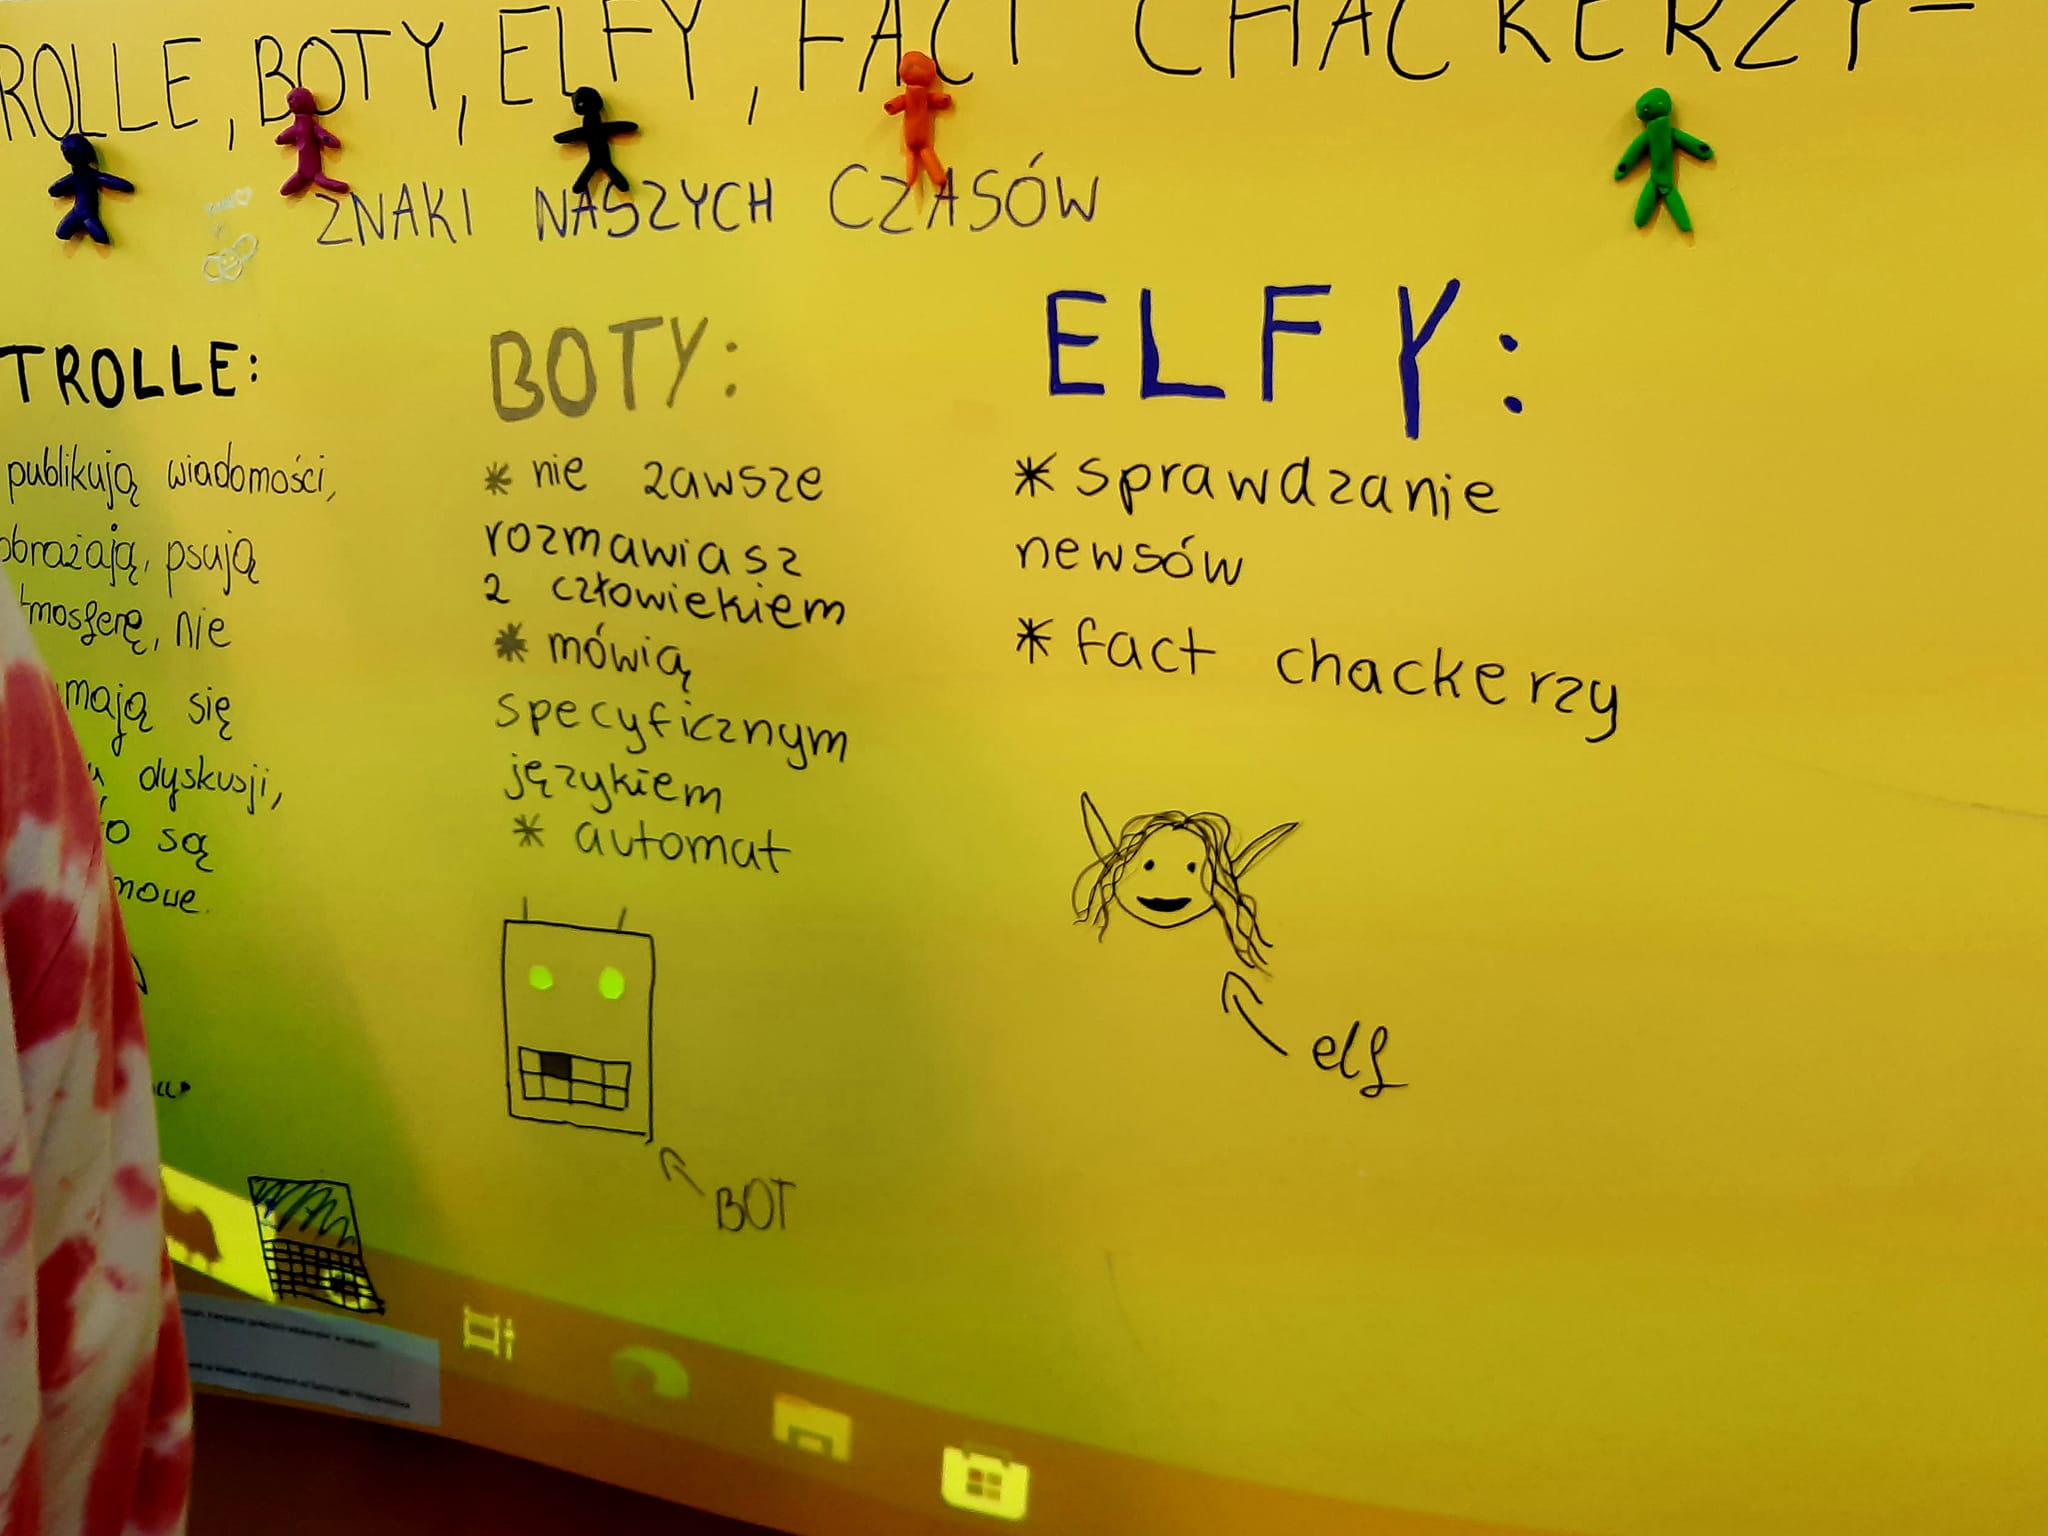 ROLLE, BOTY, ELFY, FACT CHACKERZY-
ZNAKI NASZYCH CZASÓW
TROLLE:
publikują wiadomości,
obrażają, psują
tmosferę, nie
mają się
dyskusji,
są
mowe.
BOTY:
* nie zawsze
rozmawiasz
z człowiekiem
* mówią
specyficznym
językiem
* automat
BOT
ELFY:
* sprawdzanie
newsów
* fact chackerzy
elf